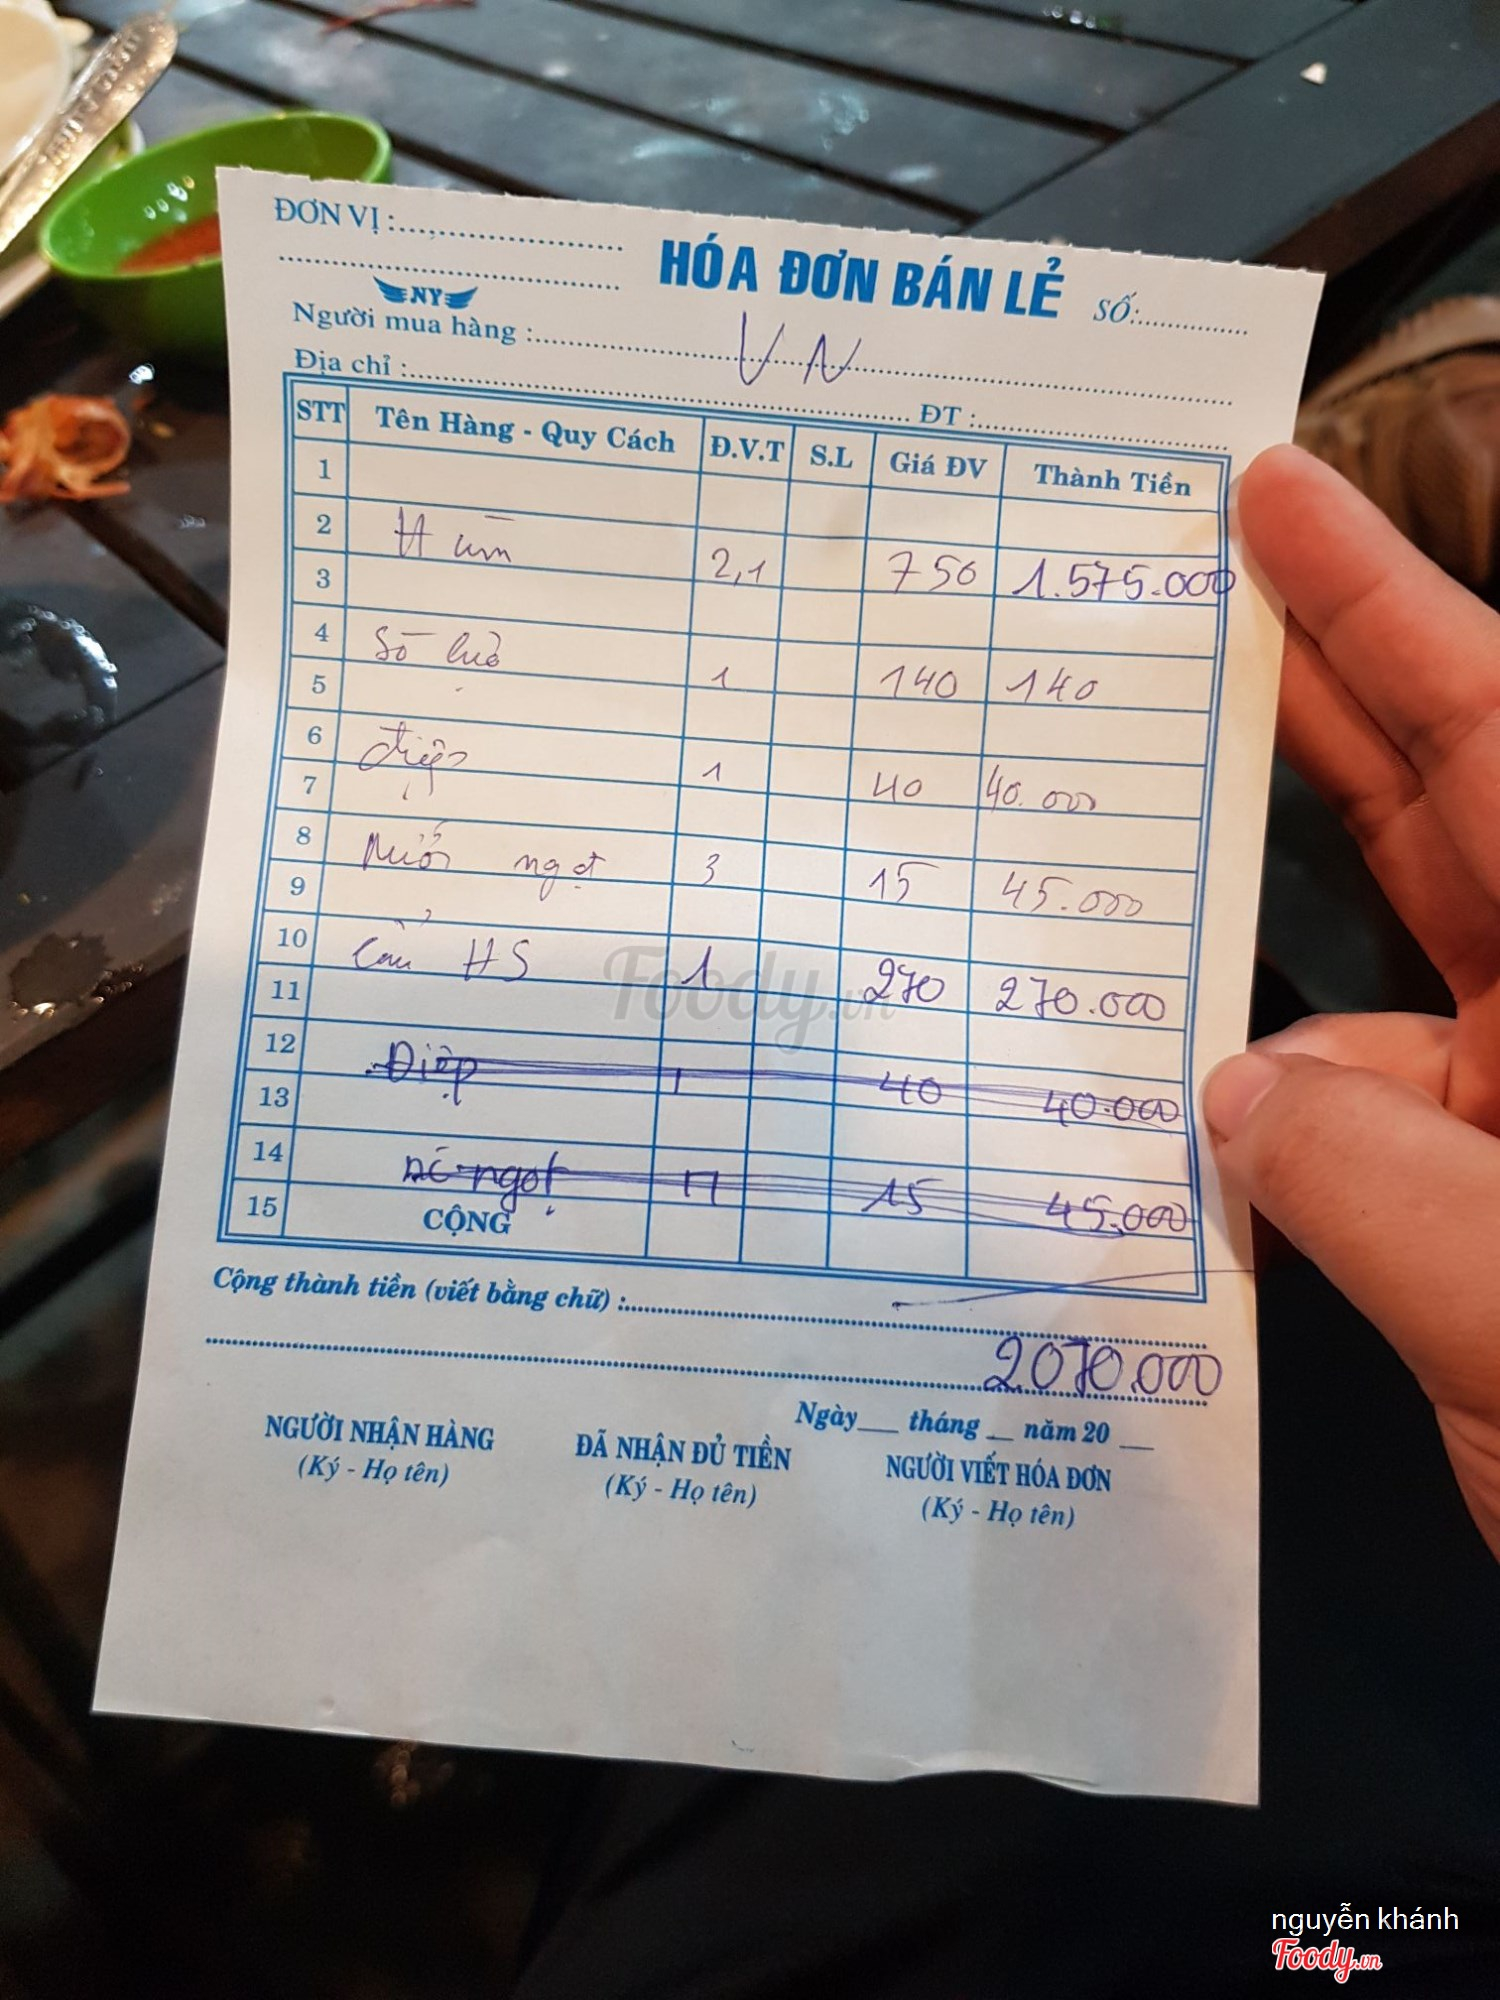 ĐƠN VỊ :
HÓA ĐƠN BÁN LẺ
SỐ:
NY
Người mua hàng : VN
Địa chỉ : ĐT :
STT Tên Hàng - Quy Cách Đ.V.T S.L Giá ĐV Thành Tiền
1
2 2,1 750 1.575.000
3
4 Sò 1 140 140
5
6 điệp 1 40 40.000
7
8 Nước ngọt 3 15 45.000
9
10 Lẩu HS 1 270 270.000
11
12 Điệp 1 40 40.000
13
14 ngọt 15 45.000
15 CỘNG
Cộng thành tiền (viết bằng chữ) :
2070.000
Ngày tháng năm 20
NGƯỜI NHẬN HÀNG ĐÃ NHẬN ĐỦ TIỀN NGƯỜI VIẾT HÓA ĐƠN
(Ký - Họ tên) (Ký - Họ tên) (Ký - Họ tên)
Foody.vn
nguyễn khánh
Foody.vn